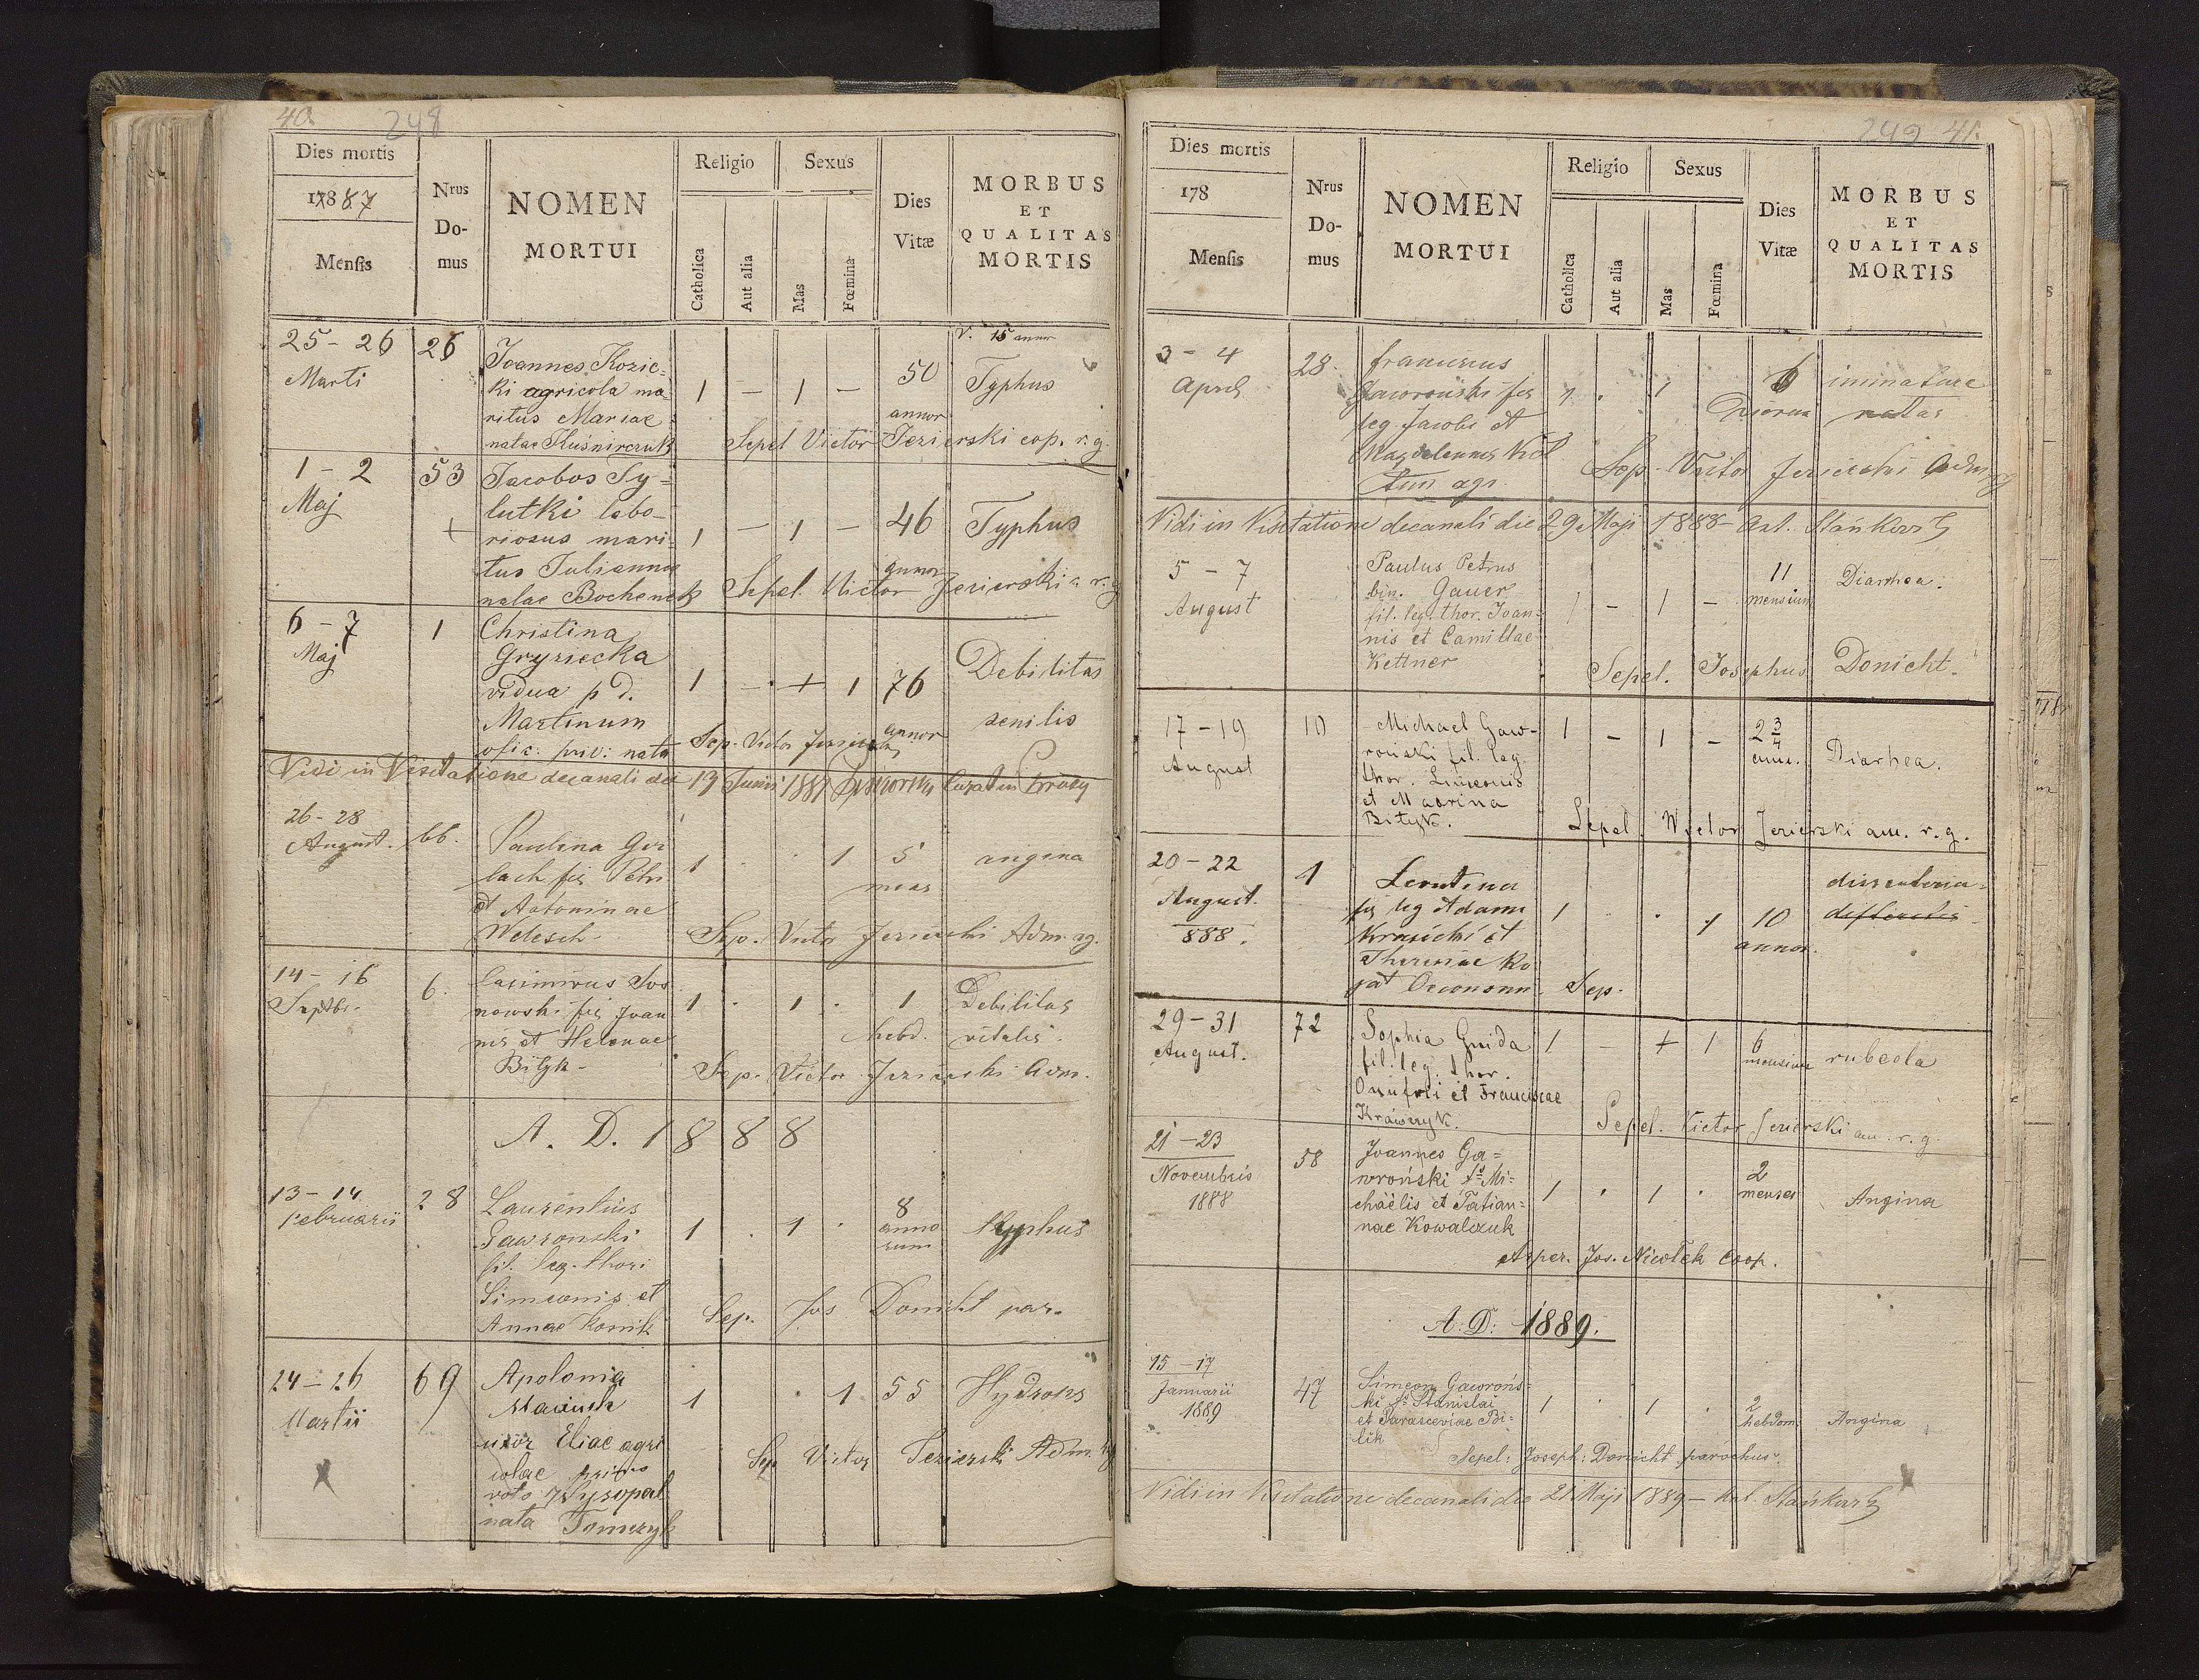 40. 248
Dies mortis
17887
Mensis
Nrus Do-mus
NOMEN
MORTUI
Religio
Catholica
Aut alia
Sexus
Mas
Fœmina
Dies
Vitæ
MORBUS
ET
QUALITAS
MORTIS
25 - 26 26 Joannes Kozic=
Marti ki agricola ma- 1 - 1 - 50 Typhus
ritus Mariae annor
natae Sepel Victor Jezierski cop. r.g.
1 - 2 53 Jacobos Sy=
Maj lutki labo-
riosus mari- 1 - 1 - 46 Typhus
tus Julianna annor
natae Bochenek Sepel. Victor Jezierski c. r. g
6 - 7 1 Christina
Maj Gryziecka
vidua p. d. 1 - + 1 76 Debilitas
Martinum annor senilis
ofic: priv: nata Sep. Victor Jezierski
Vidi in Visitatione decanali die 13 Junii 1887
26 - 28
August. 66. Paulina Ger
lach fia Petri 1 . . 1 5 angina
et Antoninae
Welesch. Sep. Victor Jezierski Adm. rg.
14 - 16 6. Casimirus Sos
Septbr. nowski fis Joan 1 . 1 . 1 Debilitas
nis et Helenae hebd. vitalis.
Bilyk - Sep. Victor Jezierski Adm.
A. D. 1888
13 - 14 28 Laurentius
Februarii Gawronski 1 . 1 . 8 annorum Typhus
fil. leg. thori
Simeonis et
Annae Sep. Jos Donicht par.
24 - 26 69 Apolonia
Martii 1 . 1 55 Hydrops
uxor Eliae agri
colae primo Sep Victor Jezierski Adm. rg
voto
nata Tomczyk
249 41.
Dies mortis
178
Mensis
Nrus Do-mus
NOMEN
MORTUI
Religio
Catholica
Aut alia
Sexus
Mas
Fœmina
Dies
Vitæ
MORBUS
ET
QUALITAS
MORTIS
3 - 4 28. franciscus
April Gaworoński fis 1 . 1 6 immature
leg Jacobi et dierum natus
Magdalennes
agr. Sep. Victor Jezierski Adm rg
Vidi in Visitatione decanali die 29 Maji 1888 - Ant. Stańkowski
5 - 7 Paulus Petrus
August bin. Gauer 1 - 1 - 11 mensium Diarrhea.
fil. leg. thor. Joan-
nis et Camillae
Kettner Sepel. Josephus Donicht.
17 - 19 10 Michael Gaw- 1 - 1 - 2 3/4 ann. Diarhea.
August roński fil. leg.
thor. Simeonis
et Maorina
Bityk. Sepel. Wictor Jezierski am. r. g.
20 - 22 1 Leontina dissenteria
August. fia leg Adami 1 . . 1 10 annor.
888. Krasicki et
Theresiae Ko
pat Oeconom. Sep.
29 - 31 72 Sophia Gnida 1 - + 1 6 mensium rubeola
August. fil. leg. thor.
Onufrii et Franciscae
Krawczyk. Sepel. Victor Jezierski am. r. g.
21 - 23 58 Joannes Ga=
Novembris wroński fs Mi= 1 . 1 . 2 menses Angina
1888 chaëlis et Tatian=
nae Kowalczuk
Asper. Jos. Nicolek coop.
A: D: 1889.
15 - 17
Januarii 47 Simeon Gawroń=
1889 ski fs Stanislai 1 . 1 . 2 hebdom. Angina
et Parasceviae Bi=
lik
Sepel: Joseph: Donicht parochus.
Vidi in Visitatione decanali die 21 Maji 1889 - Ant. Stańkowski